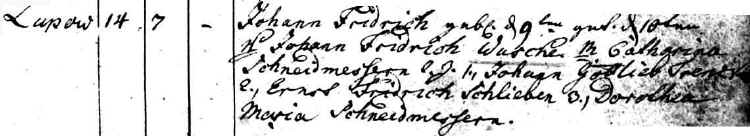 Lupow 14. 7 - Johann Fridrich geb. d 9ten get. d 10ten
Johann Fridrich Wasche M Catharina
Schneidmessern 1., Johann Gottlieb
2., Ernst Fridrich Schlieben 3., Dorothea
Maria Schneidmessern.